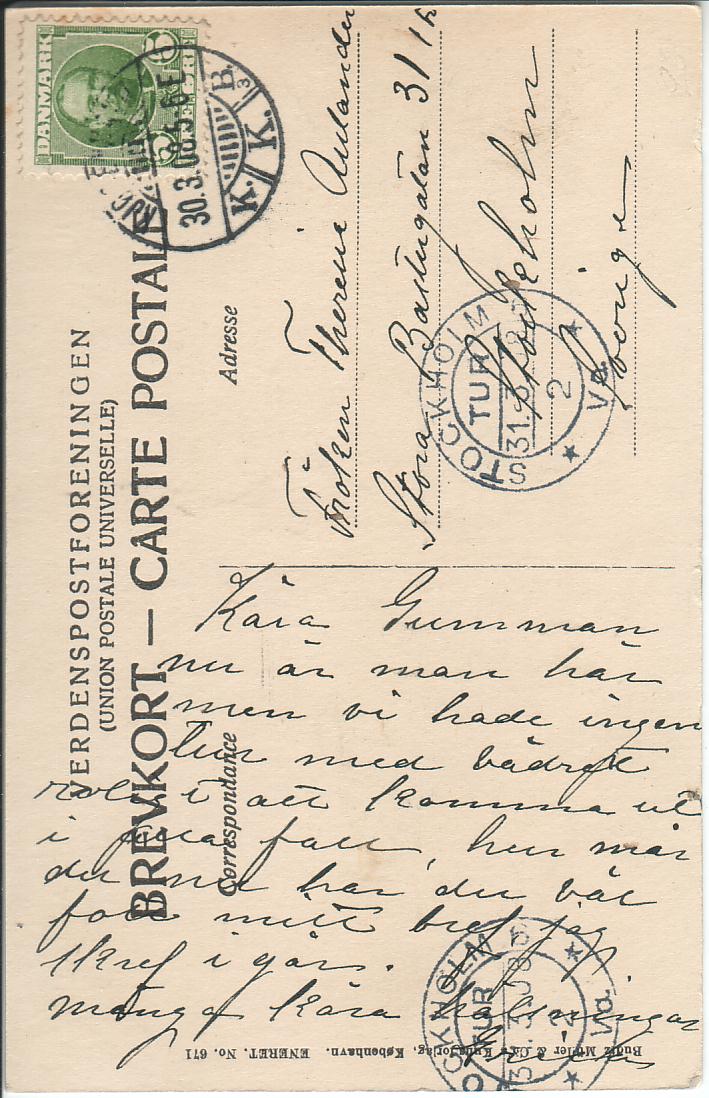 VERDENSPOSTFORENINGEN
(UNION POSTALE UNIVERSELLE)
BREVKORT — CARTE POSTALE
DANMARK
30.3.08.5-6E
K. K. B.
3
Adresse
Fröken Therese
Stora Badstugatan 31
Stockholm
Sverige
STOCKHOLM
TUR
31.3.08
2
va.
Correspondance
Kära Gumman
nu är man här
men vi hade ingen
tur med vädret
roligt att komma ut
i alla fall, hur mår
du nu har du väl
fått mitt bref jag
skref i går.
många kära hälsningar
STOCKHOLM
TUR
31.3.08
2
va.
Kunstforlag, København. ENERET. No. 671